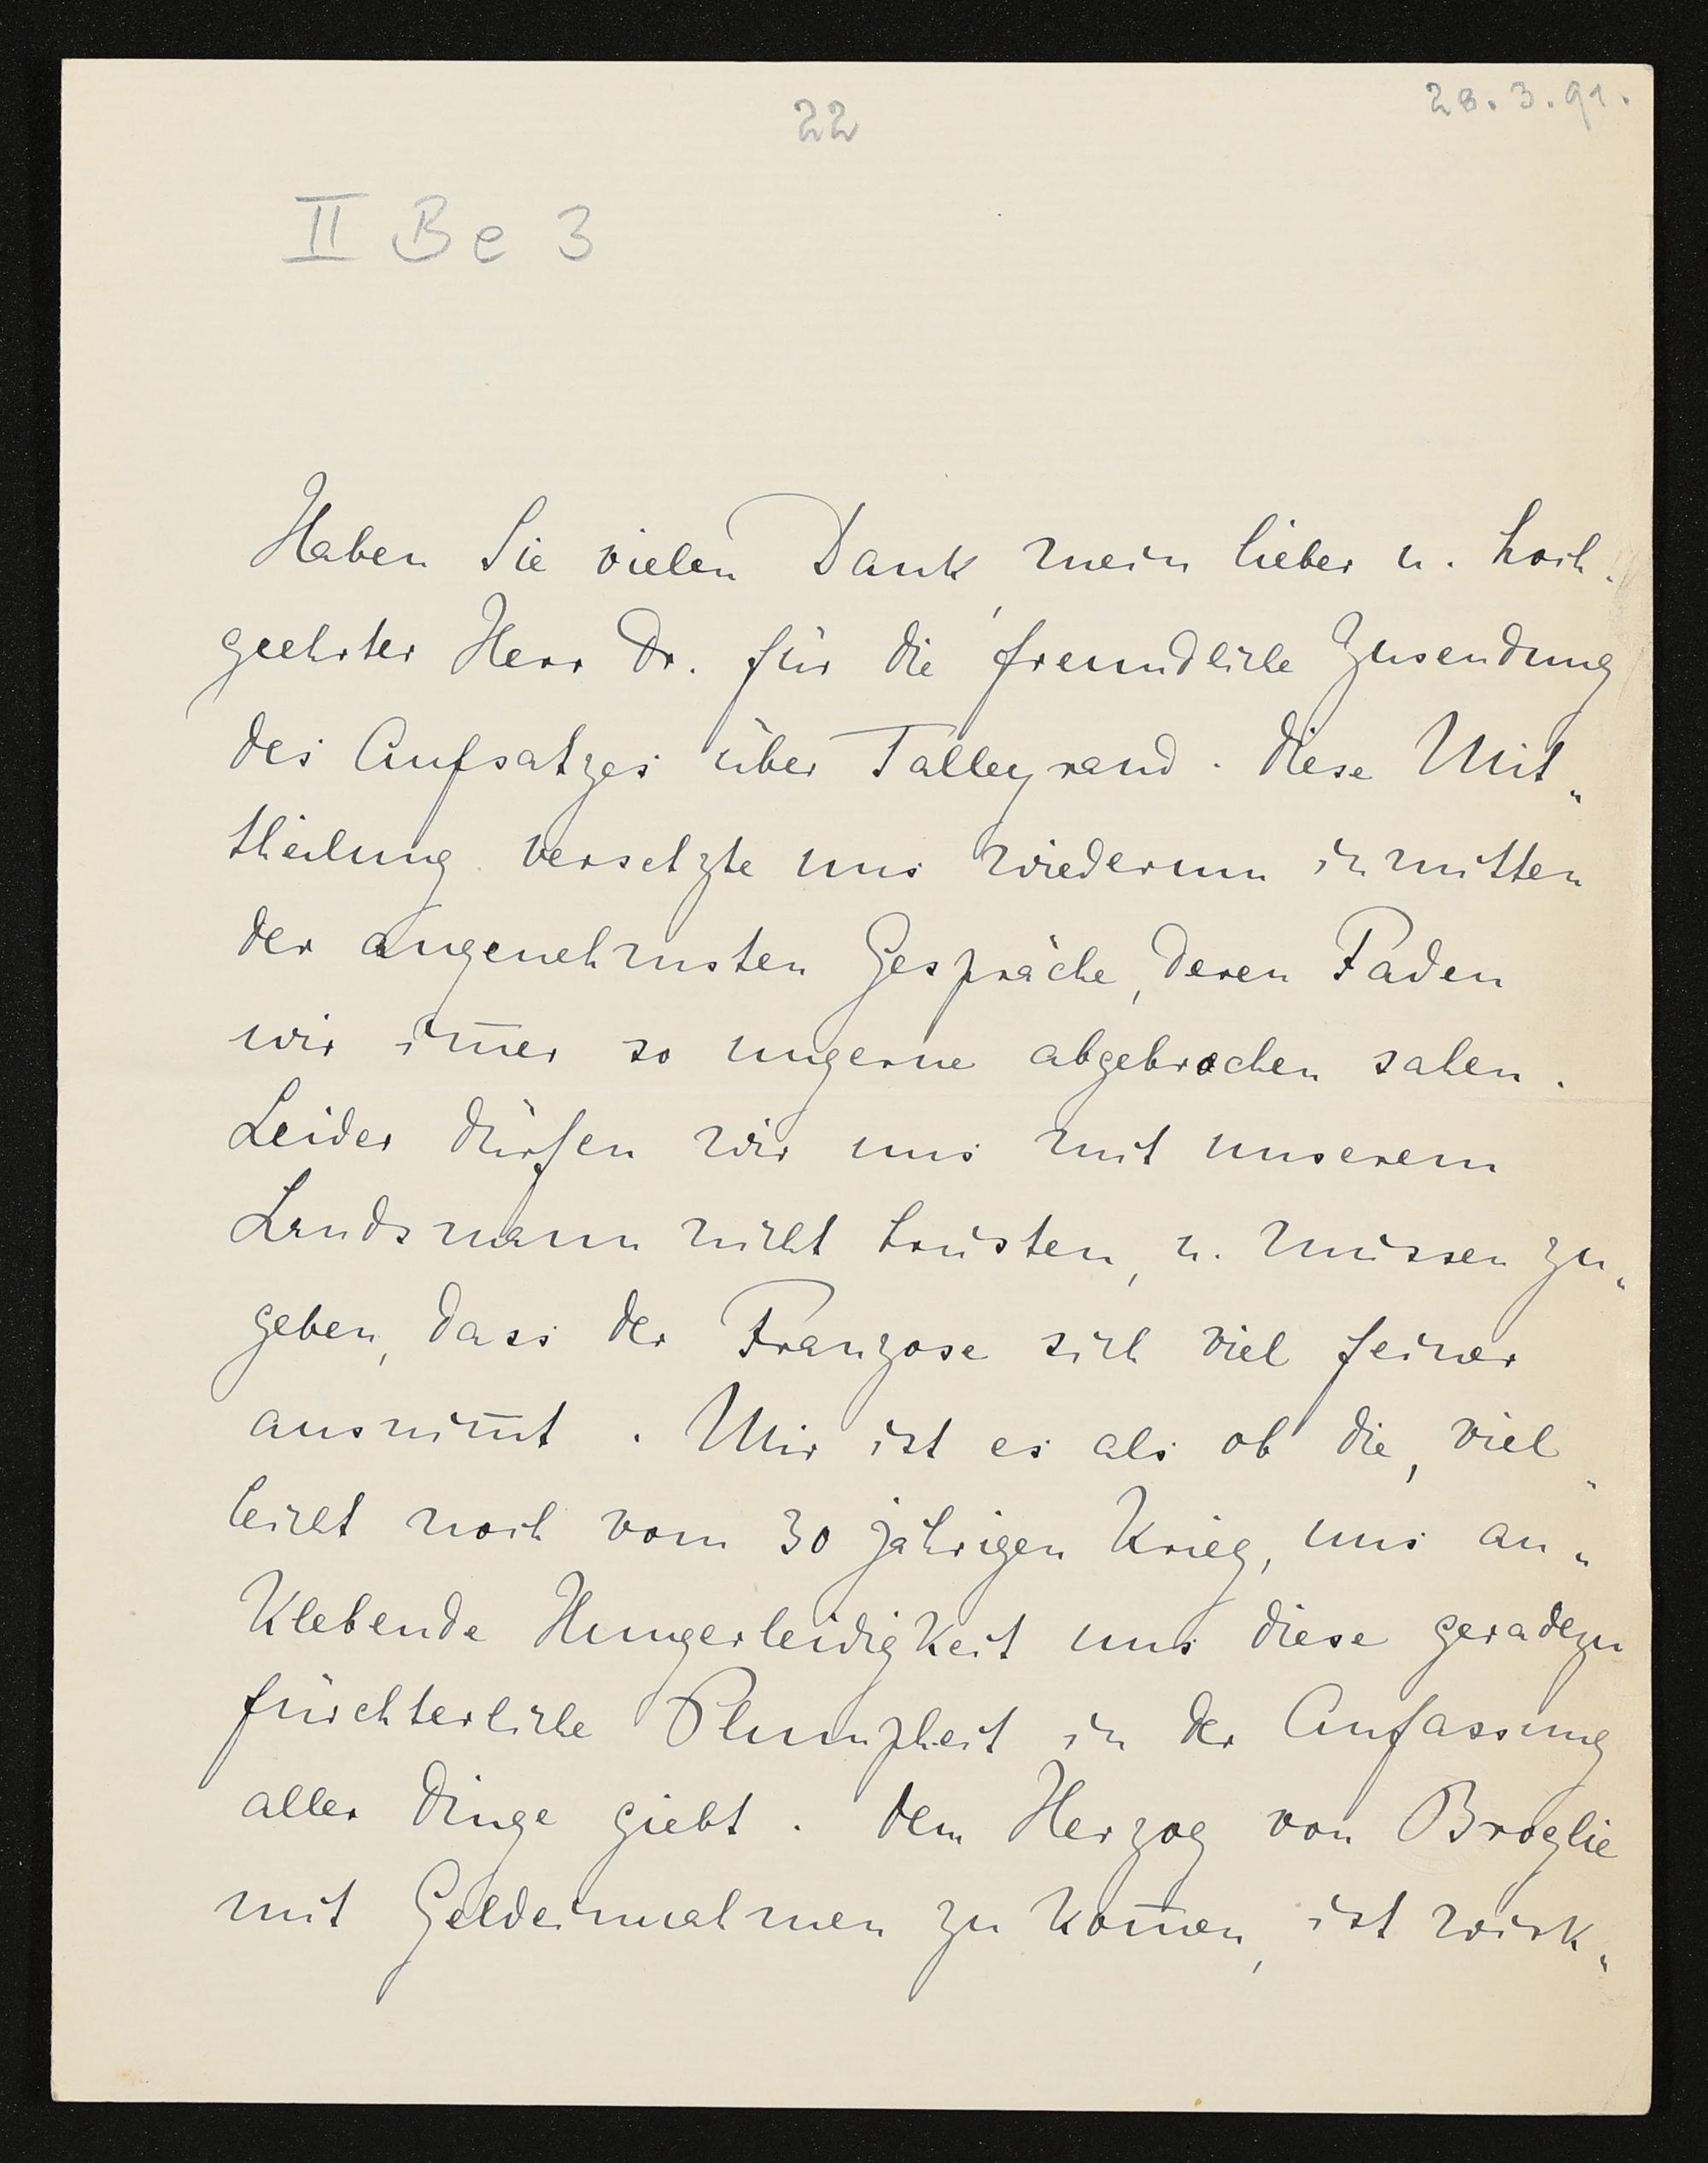 22
28.3.91.
II Be 3
Haben Sie vielen Dank, mein lieber u. hoch„
geehrter Herr Dr. für die freundliche Zusendung
des Aufsatzes über Talleyrand. Diese Mit„
theilung versetzte uns wiederum inmitten
der angenehmsten Gespräche, deren Faden
wir im̅er so ungerne abgebrochen sahen.
Leider dürfen wir uns mit unserem
Landsmann nicht brüsten, u. müssen zu„
geben, dass der Franzose sich viel feiner
ausnim̅t. Mir ist es als ob die, viel„
leicht noch vom 30 jährigen Krieg, uns an„
klebende Hungerleidigkeit uns diese geradezu
fürchterliche Plumpheit in der Auffassung
aller Dinge giebt. Dem Herzog von Broglie
mit Geldeinnahmen zu kom̅en, ist wirk„